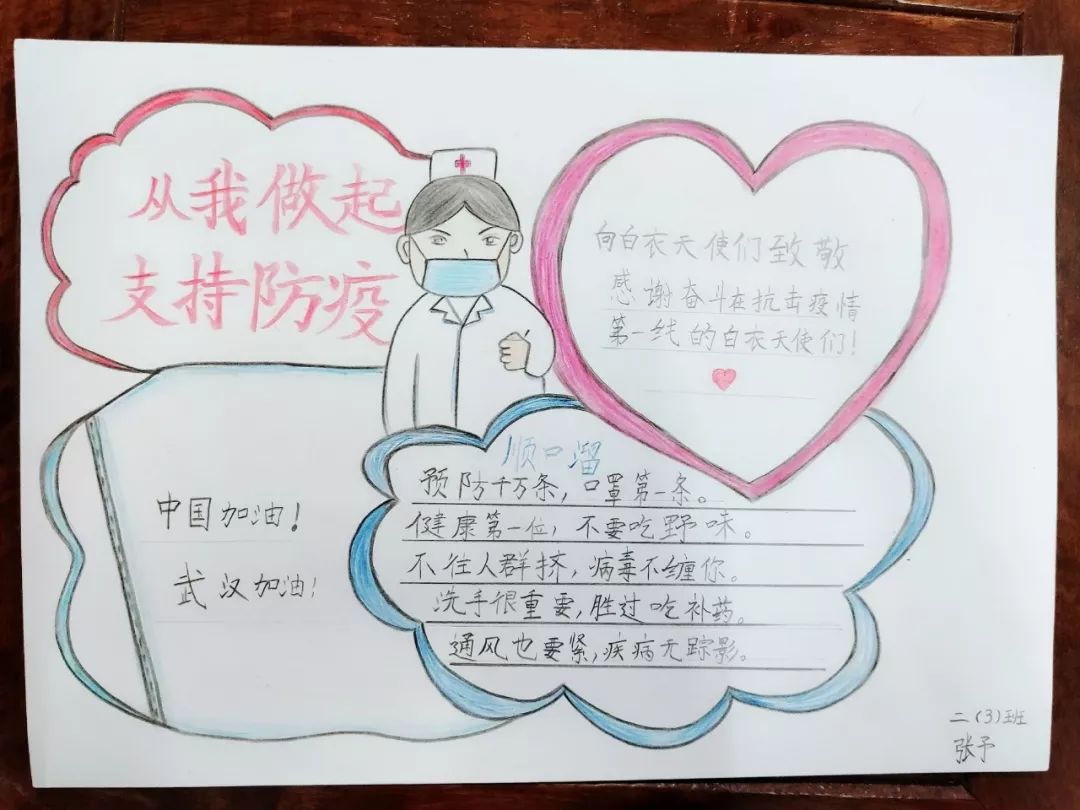 从我做起
支持防疫
向白衣天使们致敬
感谢奋斗在抗击疫情
第一线的白衣天使们！
中国加油！
武汉加油！
顺口溜
预防千万条，口罩第一条。
健康第一位，不要吃野味。
不往人群挤，病毒不缠你。
洗手很重要，胜过吃补药。
通风也要紧，疾病无踪影。
二（3）班
张予